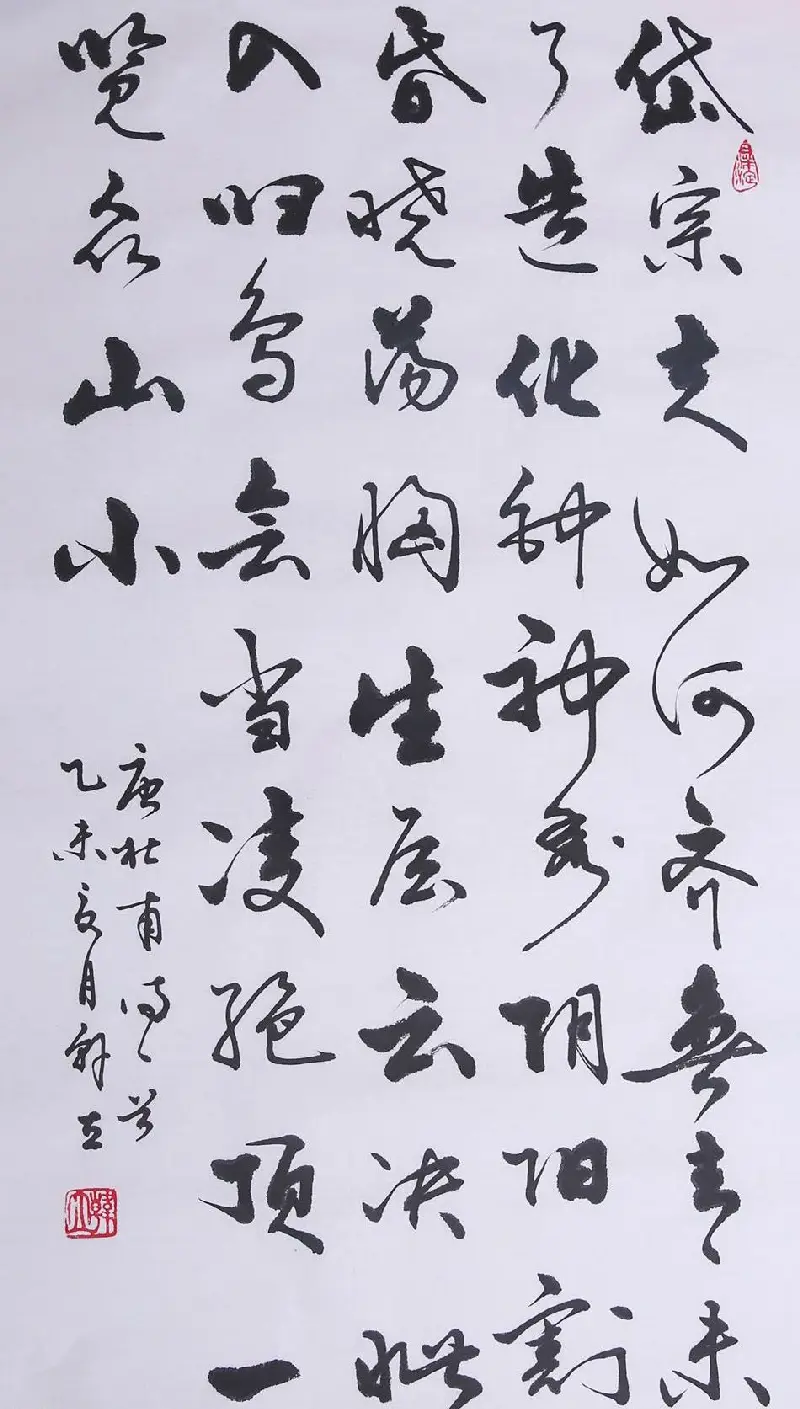 岱宗夫如何齐鲁青未
了造化钟神秀阴阳割
昏晓荡胸生层云决眦
入归鸟会当凌绝顶一
览众山小
唐杜甫诗一首
乙未夏月